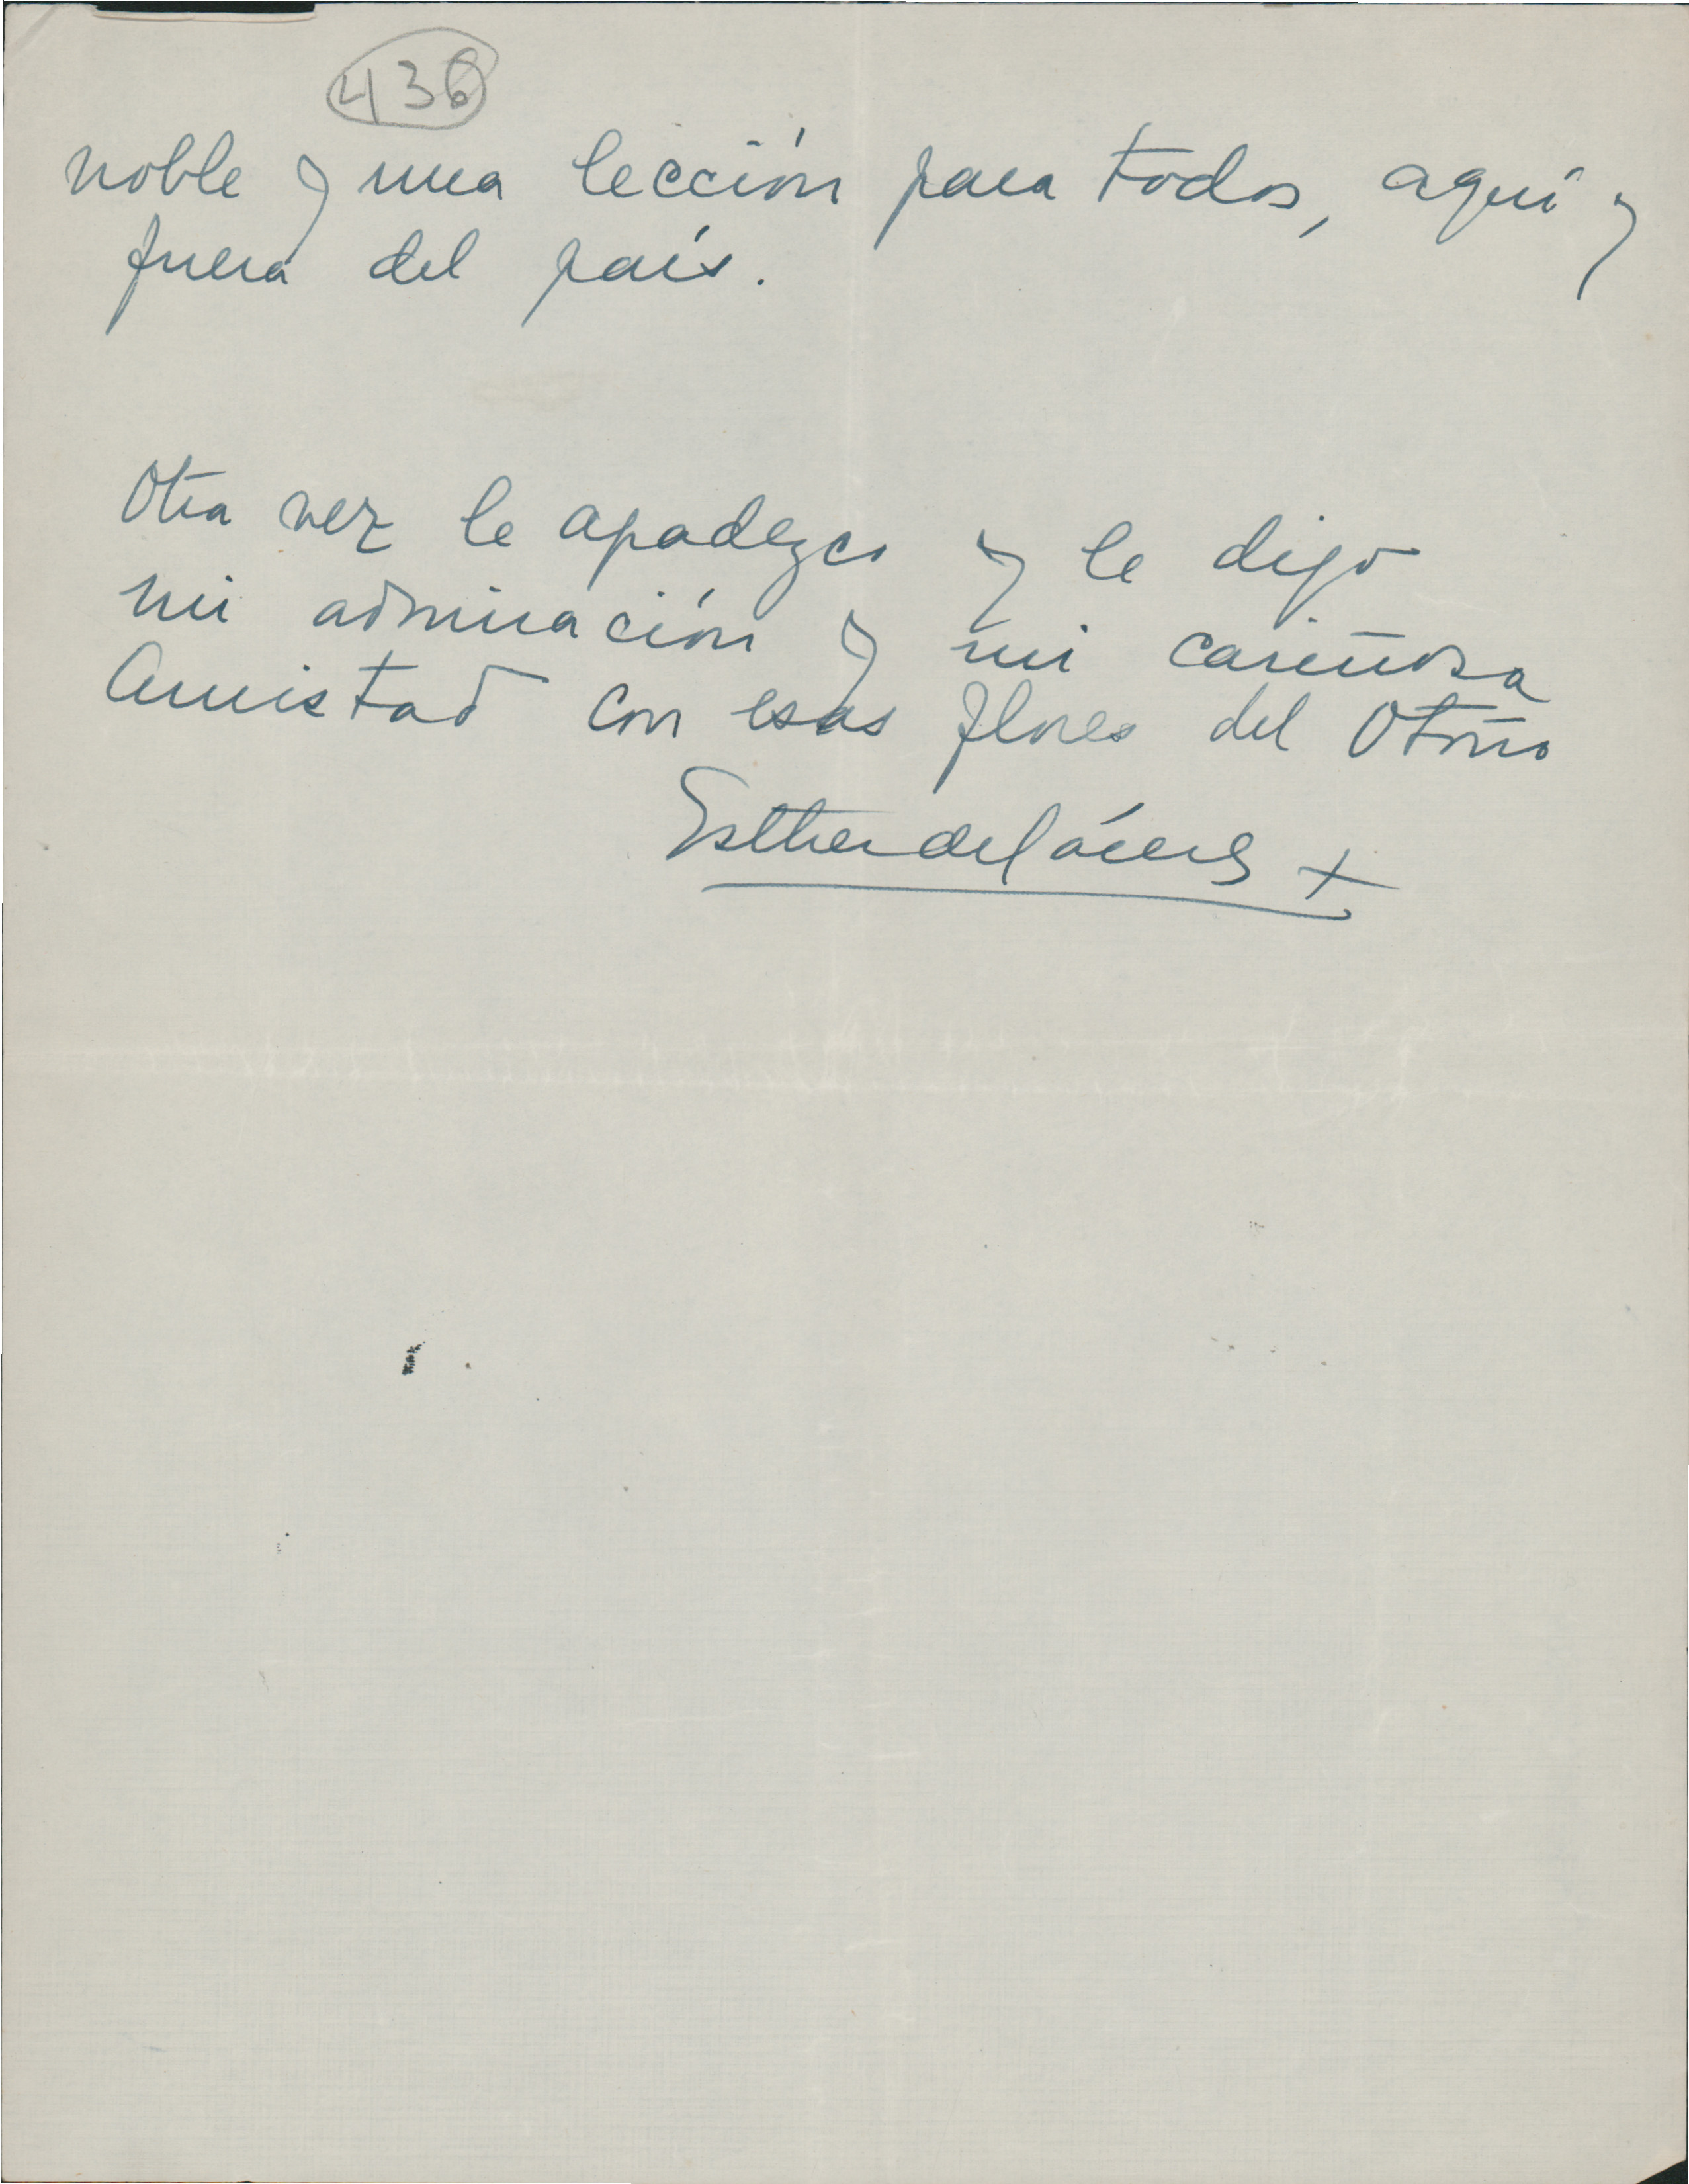 436
noble y una lección para todos, aquí y
fuera del país.
Otra vez le agradezco y le digo
mi admiración y mi cariñosa
Amistad con esas flores del Otoño
Esther de Cáceres +